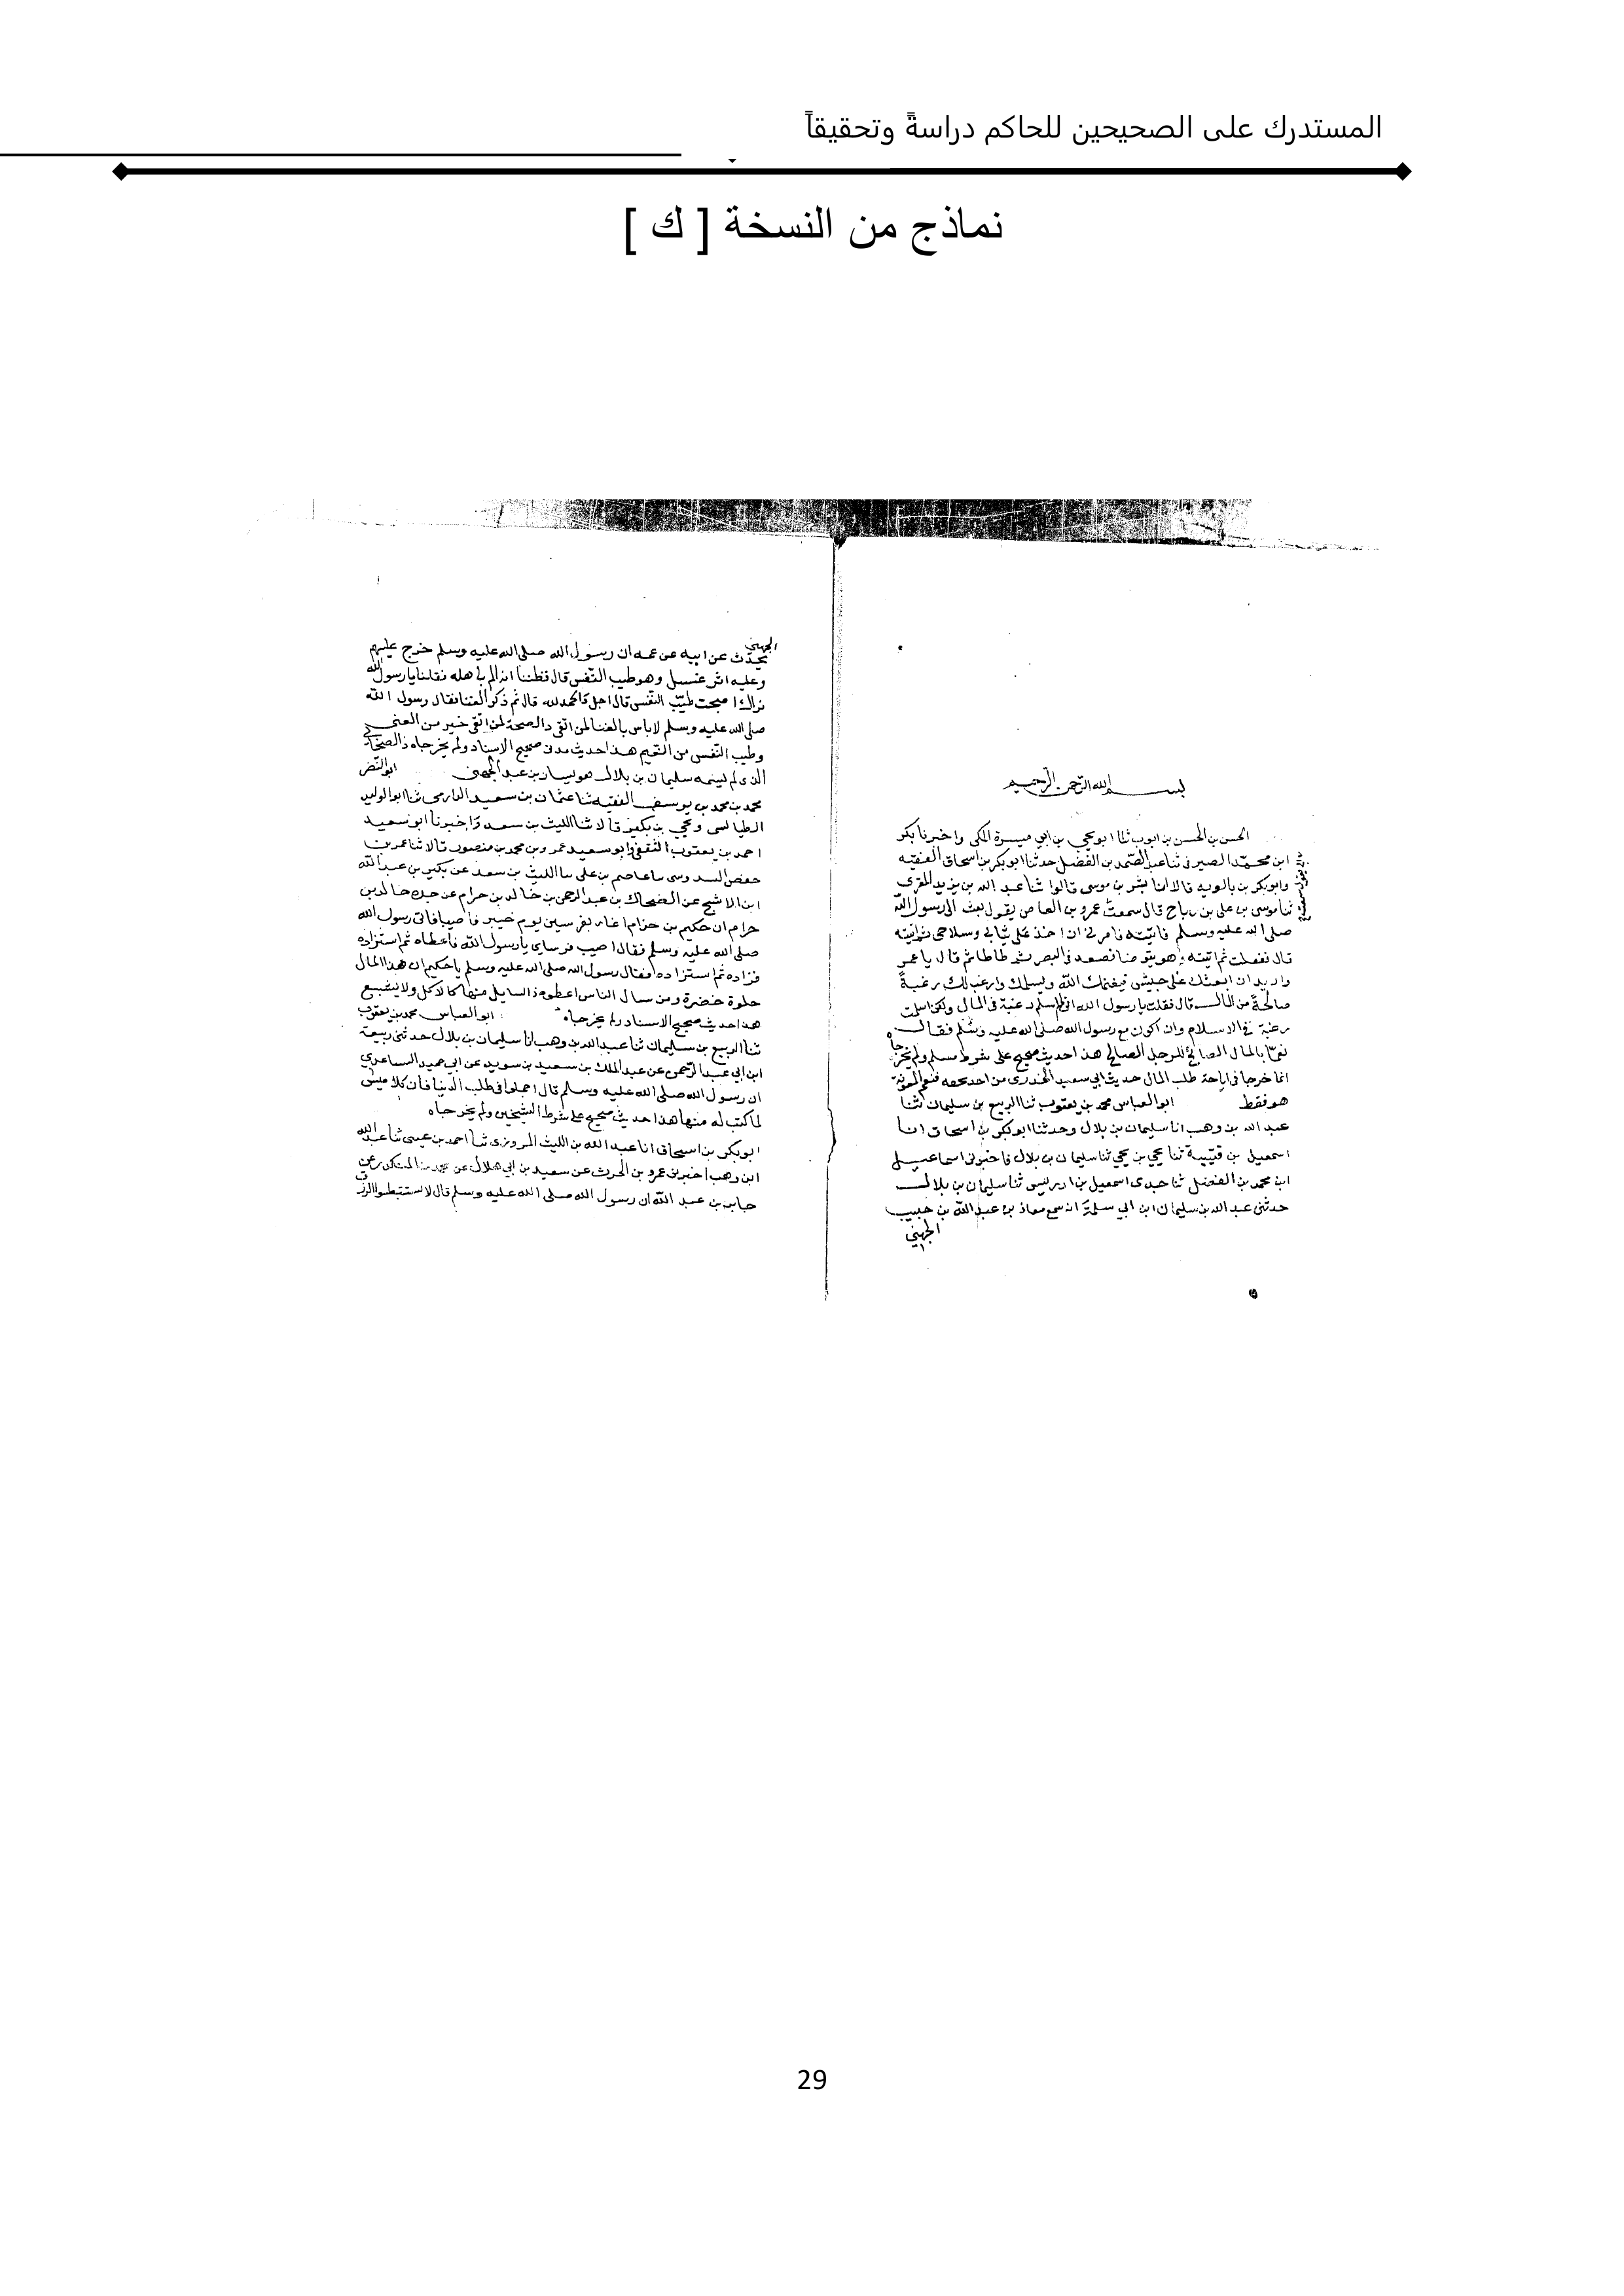 المستدرك على الصحيحين للحاكم دراسةً وتحقيقاً
نماذج من النسخة [ ك ]
بسم الله الرحمن الرحيم
الحسن بن الحسن بن ايوب ثنا ابو يحيى بن ابي ميسرة المكى واخبرنا بكر
ابن محمد الصيرفى ثنا عبد الصمد بن الفضل حدثنا ابو بكر بن اسحاق الفقيه
وابو بكر بن بالويه قالا انا بشر بن موسى قالوا ثنا عبد الله بن يزيد المقرى
ثنا موسى بن على بن رباح قال سمعت عمرو بن العاص يقول بعث الى رسول الله
صلى الله عليه وسلم فاتيته فامرنى ان اخذ على ثيابى وسلاحى ثم اتيته
قال ففعلت ثم اتيته وهو يتوضا فصعد فى البصر ثم طاطا ثم قال يا عمرو
وا ريد ان ابعثك على جيش فيغنمك الله ويسلمك وارغب لك رغبة
صالحة من المال قال فقلت يا رسول الله انى لم اسلم رغبة فى المال ولكن اسلمت
رغبة فى الاسلام وان اكون مع رسول الله صلى الله عليه وسلم فقال
نعما بالمال الصالح للرجل الصالح هذا حديث صحيح على شرط مسلم ولم يخرجاه
انما خرجا فى اباحة طلب المال حديث ابي سعيد الخدرى من اخذه بحقه فنعم المعونة
هو فقط ابو العباس محمد بن يعقوب ثنا الربيع بن سليمان ثنا
عبد الله بن وهب انا سليمان بن بلال وحدثنا ابو بكر بن اسحاق انا
اسمعيل بن قتيبة ثنا يحيى بن يحيى ثنا سليمان بن بلال فاخبرنى اسماعيل
ابن محمد بن الفضل ثنا جدى اسمعيل بن ادريس ثنا سليمان بن بلال
حدثنى عبد الله بن سليمان ابن ابي سلمة انه سمع معاذ بن عبد الله بن حبيب
الجهني
الجهني
يحدث عن ابيه عن عمه ان رسول الله صلى الله عليه وسلم خرج عليهم
وعليه اثر غسل وهو طيب النفس قال فظننا انه الم باهله فقلنا يا رسول الله
نراك اصبحت طيب النفس قال اجل والحمد لله قال ثم ذكر الغنا فقال رسول الله
صلى الله عليه وسلم لا باس بالغنا لمن اتقى والصحة لمن اتقى خير من الغنى
وطيب النفس من النعيم هذا حديث مدنى صحيح الاسناد ولم يخرجاه
الذى لم يسمه سليمان بن بلال هو يسار بن عبد الجهنى ابو النضر
محمد بن محمد بن يوسف الفقيه ثنا عثمان بن سعيد الدارمى ثنا ابو الوليد
الطيالسى ويحيى بن بكير قالا ثنا الليث بن سعد واخبرنا ابو سعيد
احمد بن يعقوب الثقفى وابو سعيد عمرو بن محمد بن منصور قالا ثنا عمر بن
حفص السدوسى ثنا عاصم بن على ثنا الليث بن سعد عن بكير بن عبد الله
ابن الاشج عن الضحاك بن عبد الرحمن بن خالد بن حرام عن جده خالد بن
حرام ان حكيم بن حزام اغار بفرسين يوم خيبر فاصيبا فاتى رسول الله
صلى الله عليه وسلم فقال اصيب فرساي يا رسول الله فاعطاه ثم استزاده
فزاده ثم استزاده فقال رسول الله صلى الله عليه وسلم يا حكيم ان هذا المال
حلوة خضرة ومن سال الناس اعطوه والسايل منها كالاكل ولا يشبع
هذا حديث صحيح الاسناد ولم يخرجاه ابو العباس محمد بن يعقوب
ثنا الربيع بن سليمان ثنا عبد الله بن وهب انا سليمان بن بلال حدثنى ربيعة
ابن ابي عبد الرحمن عن عبد الملك بن سعيد بن سويد عن ابي حميد الساعدي
ان رسول الله صلى الله عليه وسلم قال اجملوا فى طلب الدنيا فان كلا ميسر
لما كتب له منها هذا حديث صحيح على شرط الشيخين ولم يخرجاه
ابو بكر بن اسحاق انا عبد الله بن الليث المروزى ثنا احمد بن عيسى ثنا عبد الله
ابن وهب اخبرنى عمرو بن الحرث عن سعيد بن ابي هلال عن محمد بن المنكدر عن
جابر بن عبد الله ان رسول الله صلى الله عليه وسلم قال لا تستبطوا الرزق
29